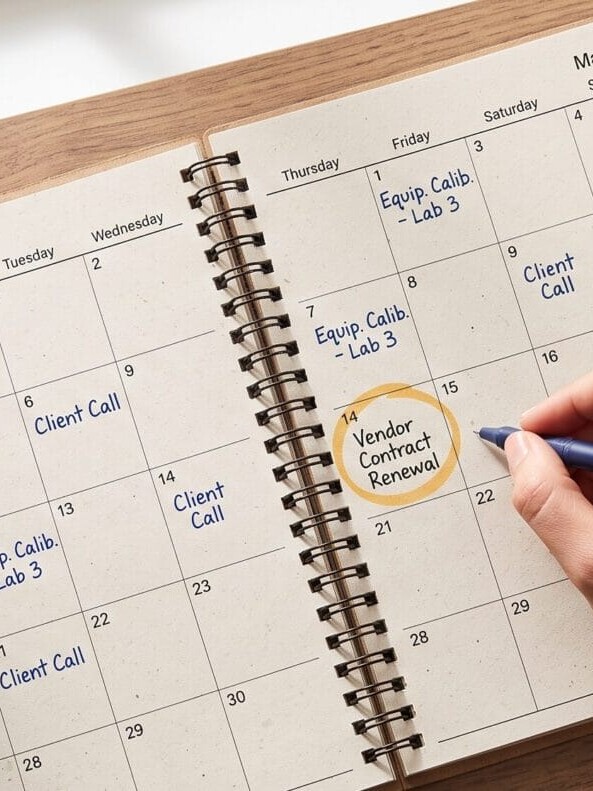 Tuesday Wednesday
2
6 9
Client Call
13 14
p. Calib. Client
Lab 3 Call
1 22 23
Client Call
28 29 30
Ma
Thursday Friday Saturday S
1 3 4
Equip. Calib.
- Lab 3
7 8 9
Equip. Calib. Client
- Lab 3 Call
14 15 16
Vendor
Contract
Renewal
21 22
28 29